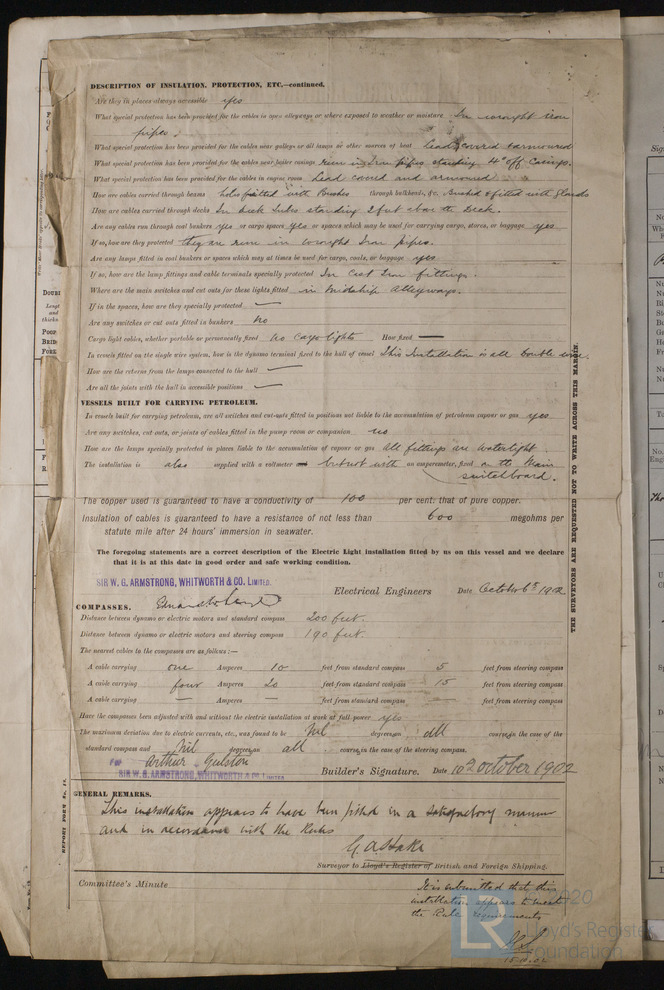 DESCRIPTION OF INSULATION, PROTECTION, ETC.—continued.
Are they in places always accessible yes
What special protection has been provided for the cables in open alleyways or where exposed to weather or moisture In wrought iron
pipes.
What special protection has been provided for the cables near galleys or oil lamps or other sources of heat lead covered & armoured
What special protection has been provided for the cables near boiler casings run in Iron pipes standing 4" off casings.
What special protection has been provided for the cables in engine room Lead covered and armoured
How are cables carried through beams holes fitted with Bushes through bulkheads, &c. Bushed & fitted with glands
How are cables carried through decks In deck tubes standing 2 feet above the Deck.
Are any cables run through coal bunkers yes or cargo spaces yes or spaces which may be used for carrying cargo, stores, or baggage yes
If so, how are they protected they are run in wrought Iron pipes.
Are any lamps fitted in coal bunkers or spaces which may at times be used for cargo, coals, or baggage yes
If so, how are the lamp fittings and cable terminals specially protected In Cast Iron fittings.
Where are the main switches and cut outs for these lights fitted in Midship Alleyways.
If in the spaces, how are they specially protected —
Are any switches or cut outs fitted in bunkers No
Cargo light cables, whether portable or permanently fixed No Cargo lights How fixed —
In vessels fitted on the single wire system, how is the dynamo terminal fixed to the hull of vessel This Installation is all double wire.
How are the returns from the lamps connected to the hull —
Are all the joints with the hull in accessible positions —
VESSELS BUILT FOR CARRYING PETROLEUM.
In vessels built for carrying petroleum, are all switches and cut-outs fitted in positions not liable to the accumulation of petroleum vapour or gas yes
Are any switches, cut outs, or joints of cables fitted in the pump room or companion no
How are the lamps specially protected in places liable to the accumulation of vapour or gas All fittings are watertight
The installation is also supplied with a voltmeter but not with an amperemeter, fixed on the Main
switchboard.
The copper used is guaranteed to have a conductivity of 100 per cent. that of pure copper.
Insulation of cables is guaranteed to have a resistance of not less than 600 megohms per
statute mile after 24 hours' immersion in seawater.
The foregoing statements are a correct description of the Electric Light installation fitted by us on this vessel and we declare
that it is at this date in good order and safe working condition.
SIR W. G. ARMSTRONG, WHITWORTH & CO. LIMITED.
Electrical Engineers Date October 6th 1902
COMPASSES.
Distance between dynamo or electric motors and standard compass 200 feet.
Distance between dynamo or electric motors and steering compass 190 feet.
The nearest cables to the compasses are as follows:—
A cable carrying one Amperes 10 feet from standard compass 5 feet from steering compass
A cable carrying four Amperes 20 feet from standard compass 15 feet from steering compass
A cable carrying — Amperes — feet from standard compass — feet from steering compass
Have the compasses been adjusted with and without the electric installation at work at full power yes
The maximum deviation due to electric currents, etc., was found to be Nil degrees on all courses in the case of the
standard compass and Nil degrees on all courses in the case of the steering compass.
For Arthur Gulston
SIR W. G. ARMSTRONG, WHITWORTH & CO. LIMITED
Builder's Signature. Date 10th October 1902
GENERAL REMARKS.
This installation appears to have been fitted in a satisfactory manner
and in accordance with the Rules
Surveyor to Lloyd's Register of British and Foreign Shipping.
Committee's Minute
It is submitted that this
installation appears to meet
the Rule requirements
THE SURVEYORS ARE REQUESTED NOT TO WRITE ACROSS THIS MARGIN.
2020
LR
Lloyd's Register
Foundation